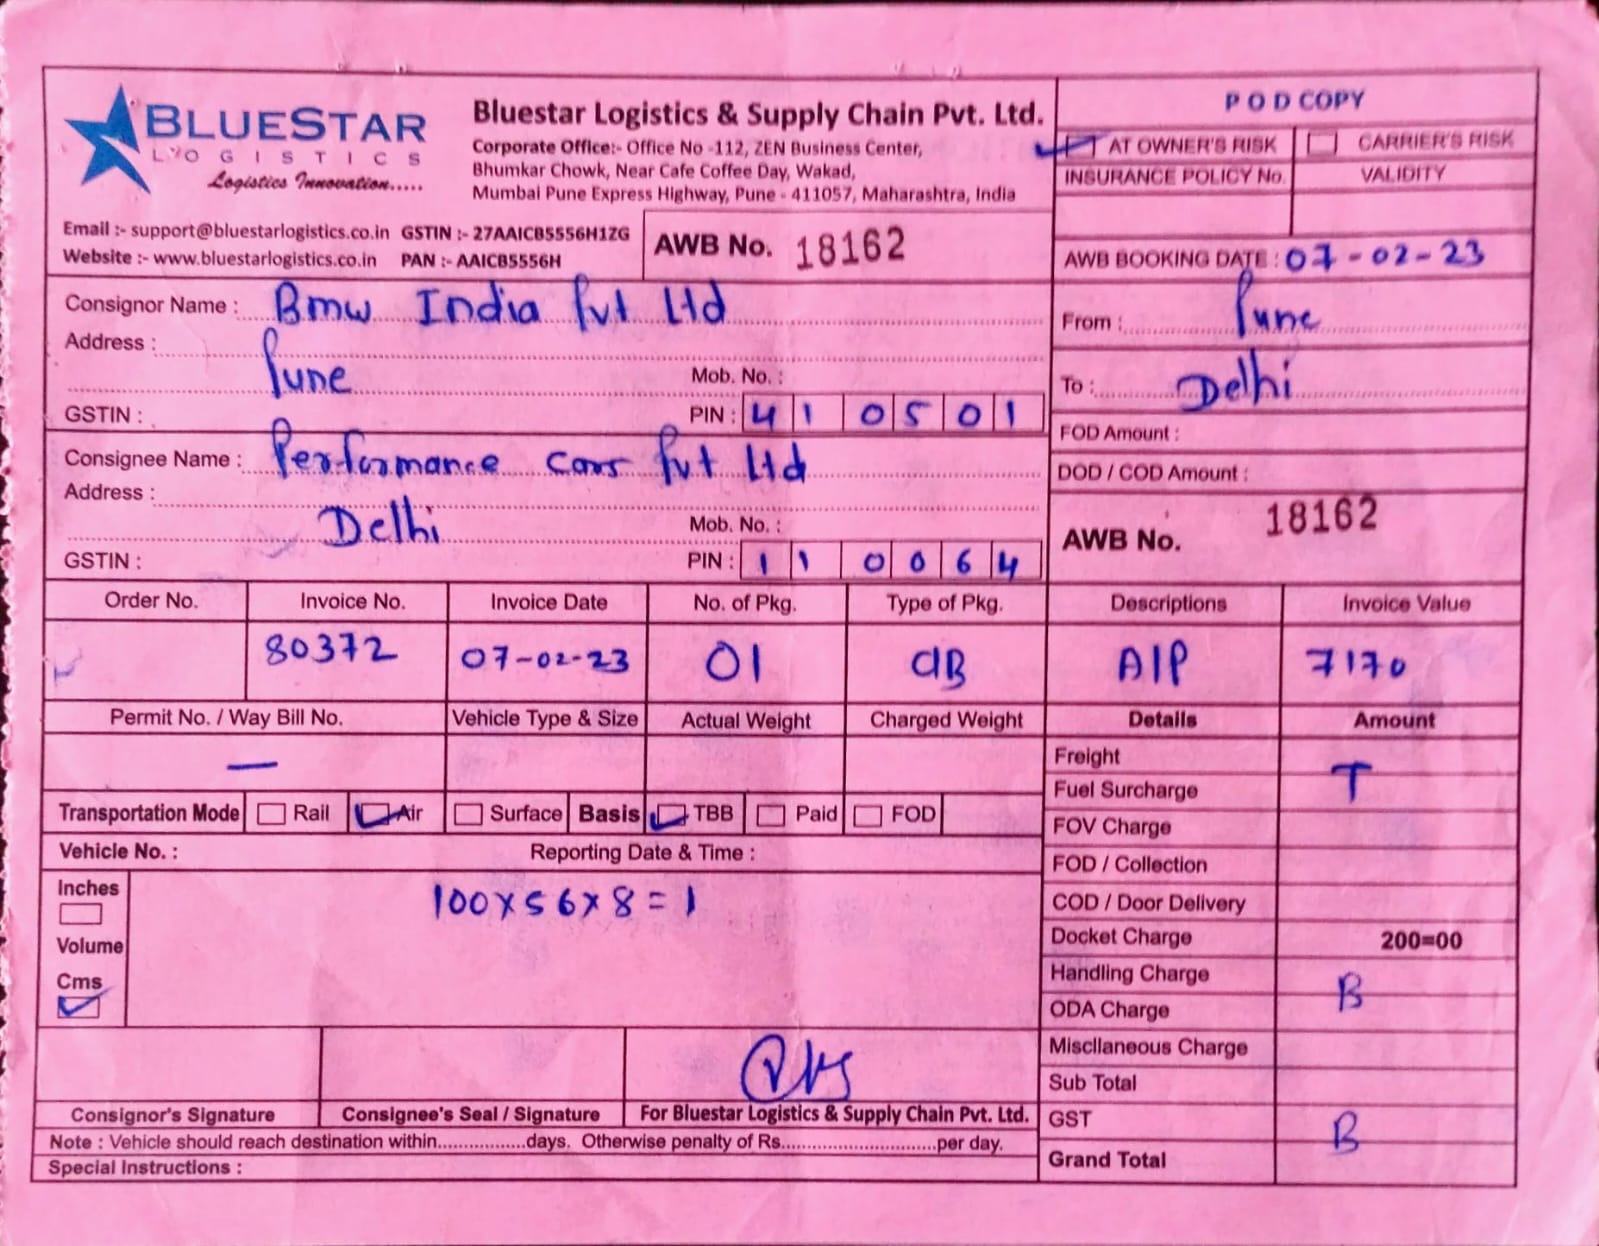 BLUESTAR
LOGISTICS
Logistics Innovation.....
Bluestar Logistics & Supply Chain Pvt. Ltd.
Corporate Office:- Office No -112, ZEN Business Center,
Bhumkar Chowk, Near Cafe Coffee Day, Wakad,
Mumbai Pune Express Highway, Pune - 411057, Maharashtra, India
POD COPY
AT OWNER'S RISK CARRIER'S RISK
INSURANCE POLICY No. VALIDITY
Email :- support@bluestarlogistics.co.in GSTIN :- 27AAICB5556H1ZG
Website :- www.bluestarlogistics.co.in PAN :- AAICB5556H
AWB No. 18162
AWB BOOKING DATE : 07-02-23
Consignor Name : Bmw India Pvt Ltd
Address :
Pune Mob. No. :
GSTIN : PIN : 410501
From : Pune
To : Delhi
FOD Amount :
DOD / COD Amount :
Consignee Name : Performance cars Pvt Ltd
Address :
Delhi Mob. No. :
GSTIN : PIN : 110064
AWB No. 18162
Order No. Invoice No. Invoice Date No. of Pkg. Type of Pkg. Descriptions Invoice Value
80372 07-02-23 01 CB AIP 7170
Permit No. / Way Bill No. Vehicle Type & Size Actual Weight Charged Weight Details Amount
—
Freight
Fuel Surcharge T
Transportation Mode Rail Air Surface Basis TBB Paid FOD
FOV Charge
Vehicle No. : Reporting Date & Time :
FOD / Collection
Inches
Volume
Cms
100x56x8=1
COD / Door Delivery
Docket Charge 200=00
Handling Charge B
ODA Charge
Miscllaneous Charge
Sub Total
GST B
Grand Total
Consignor's Signature Consignee's Seal / Signature For Bluestar Logistics & Supply Chain Pvt. Ltd.
Note : Vehicle should reach destination within................days. Otherwise penalty of Rs............................per day.
Special Instructions :